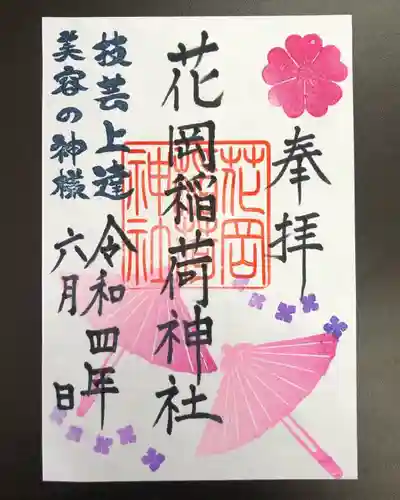 奉拝
花岡稲荷神社
花岡稲荷神社
技芸上達
美容の神様
令和四年
六月 日